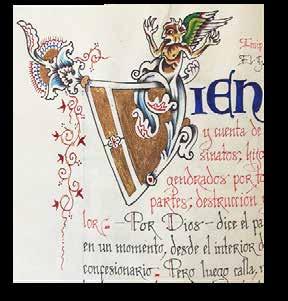 VIEN
y cuenta de
sinatos; hijo
gendrados por
partes; destruccion
lor. — Por Dios — dice el pa
en un momento, desde el interior d
confesionario. — Pero luego calla,